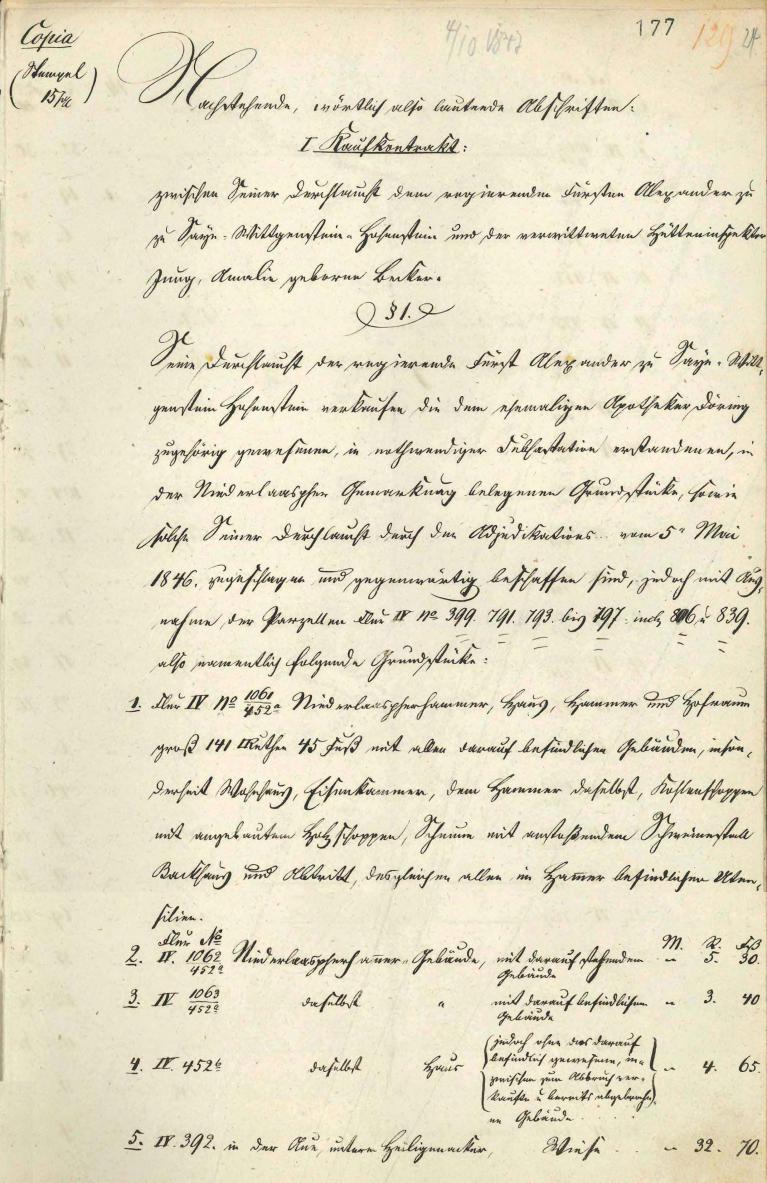 Copia
(Stempel
15 )
4/10 1847
177
129
Nachstehende, wörtlich also lautende Abschriften:
I Kaufkontrakt:
zwischen Seiner Durchlaucht dem regierenden Fürsten Alexander zu
zu Sayn-Wittgenstein-Hohenstein und der verwittweten Hütteninspektor
Jung, Amalie geborne Becker.
§ 1.
Seine Durchlaucht der regierende Fürst Alexander zu Sayn-Witt-
genstein Hohenstein verkaufen die dem ehemaligen Apotheker Döring
zugehörig gewesenen, in nothwendiger Subhastation erstandenen, in
der Niederlaaspher Gemarkung belegenen Grundstücke, sowie
solche Seiner Durchlaucht durch den Adjudikations.. vom 5n Mai
1846. zugeschlagen und gegenwärtig beschaffen sind, jedoch mit Aus-
nahme der Parzellen Flur IV No 399. 791. 793. bis 797. incl. 806 u 839.
also namentlich folgende Grundstücke:
1. Flur IV No 1061/452a Niederlaaspherhammer, Haus, Hammer und Hofraum
groß 141 □Ruthen 45 Fuß mit allen darauf befindlichen Gebäuden, inson-
derheit Wohnhaus, Eisenkammer, dem Hammer daselbst, Kohlenschoppen
mit angebautem Holzschoppen, Scheune mit anstoßendem Schweinestall
Backhaus und Abtritt, desgleichen allen im Hammer befindlichen Uten-
silien.
Flur No M. R. Fß
2. IV. 1062/452a Niederlaaspherhammer-Gebäude, mit darauf stehendem Gebäude " 5. 30.
3. IV 1063/452a daselbst " mit darauf befindlichen Gebäude " 3. 40
4. IV. 452b daselbst Haus (jedoch ohne das darauf befindlich gewesene, inzwischen zum Abbruch verkaufte u bereits abgebrochene Gebäude " 4. 65.
5. IV. 392. in der Aue, unterm Heiligenacker, Wiese " 32. 70.